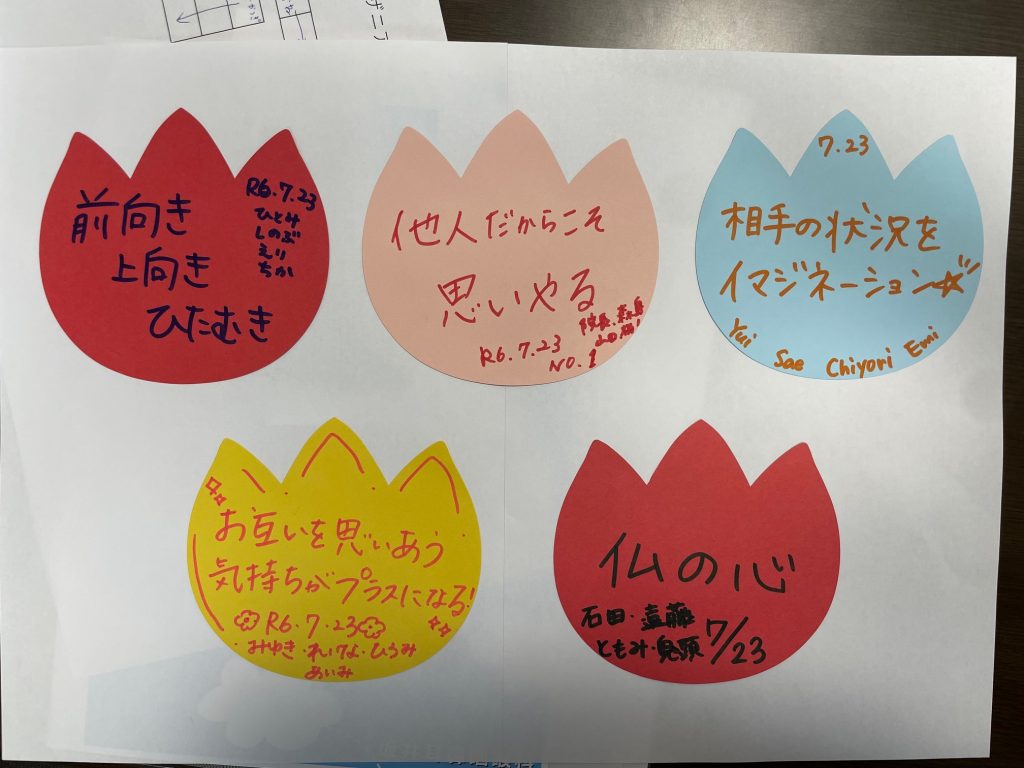 前向き
上向き
ひたむき
R6.7.23
ひとみ
しのぶ
えり
ちか
他人だからこそ
思いやる
R6.7.23
院長・
NO.1
7.23
相手の状況を
イマジネーション☆
Yui Sae Chiyori Emi
お互いを思いあう
気持ちがプラスになる!
R6.7.23
みゆき・れいな・ひろみ
あいみ
仏の心
石田・遠藤
ともみ・鬼頭
7/23